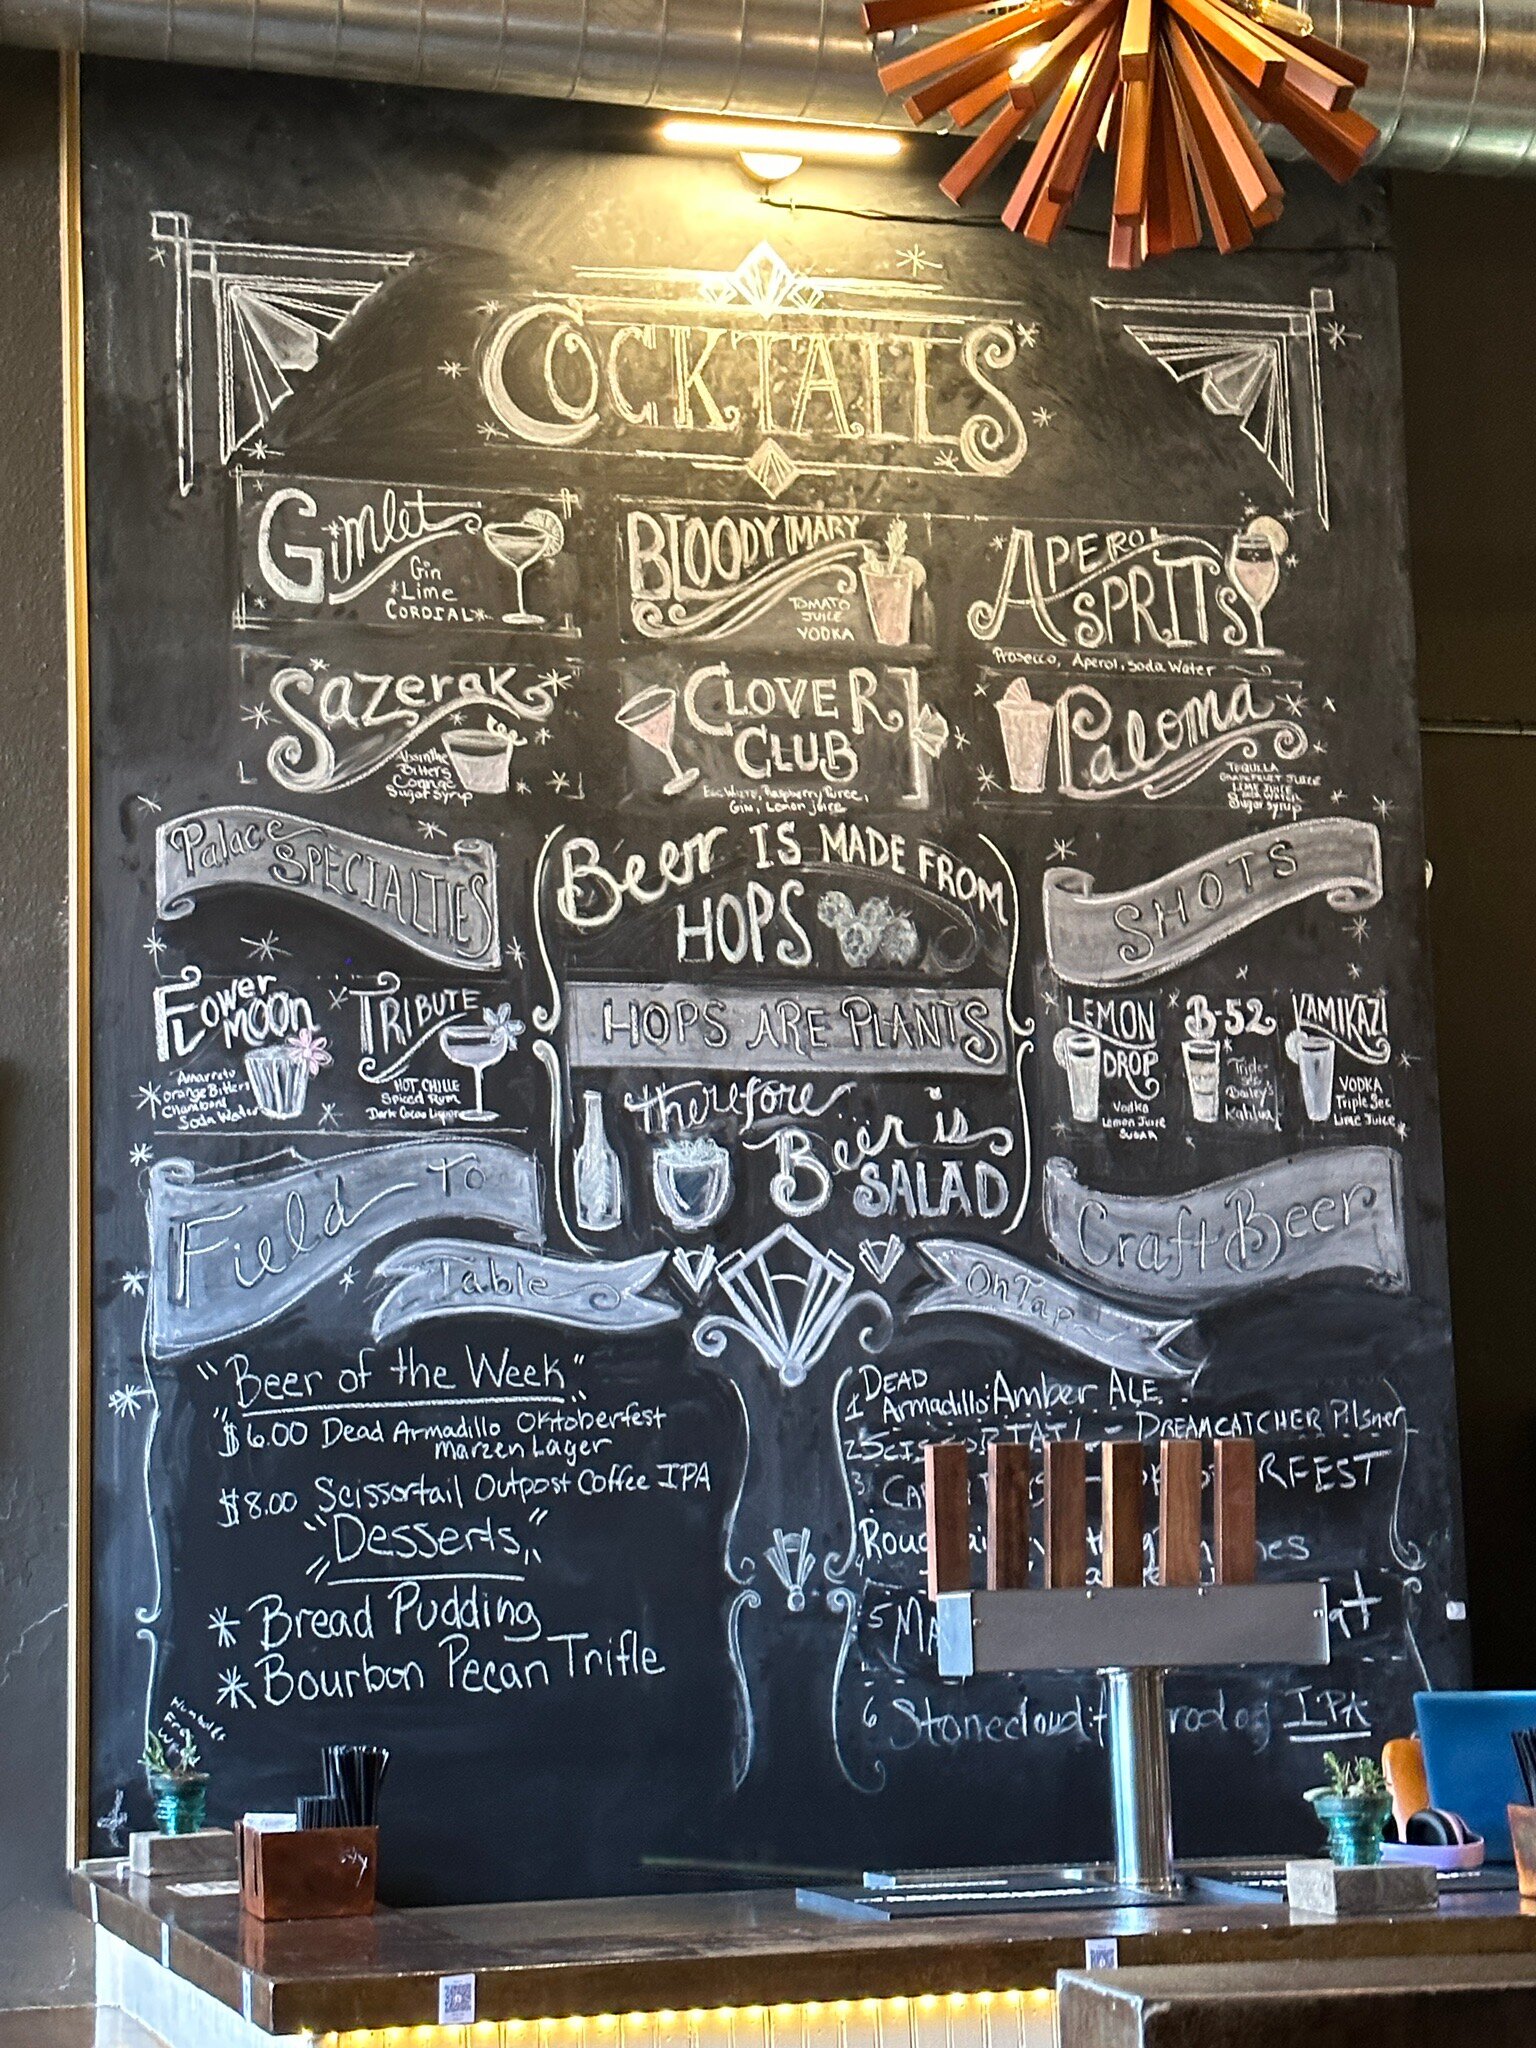 COCKTAILS
Gimlet
Gin
*Lime
CORDIAL*
BLOODY MARY
TOMATO
JUICE
VODKA
APEROL
SPRITS
Prosecco, Aperol, Soda Water
Sazerak
Absinthe
Bitters
Cognac
Sugar Syrup
CLOVER
CLUB
EGG WHITE, Raspberry Puree,
Gin, Lemon Juice
Paloma
TEQUILLA
GRAPEFRUIT JUICE
LIME JUICE
Sugar Syrup
Palace
SPECIALTIES
Flower
MOON
Amarreto
Orange Bitters
Chambord
Soda Water
TRIBUTE
HOT CHILLE
Spiced Rum
Dark Cocoa Liquor
Beer IS MADE FROM
HOPS
HOPS ARE PLANTS
therefore
Beer is
SALAD
SHOTS
LEMON
DROP
Vodka
Lemon Juice
SUGAR
B-52
Triple
Sec
Bailey's
Kahlua
KAMIKAZI
VODKA
Triple Sec
Lime Juice
Field To
Table
"Beer of the Week"
$6.00 Dead Armadillo Oktoberfest
Marzen Lager
$8.00 Scissortail Outpost Coffee IPA
"Desserts"
* Bread Pudding
* Bourbon Pecan Trifle
Craft Beer
On Tap
1 DEAD
Armadillo: Amber ALE
2 - DREAMCATCHER Pilsner
3
4
5
6 Stonecloud: IPA